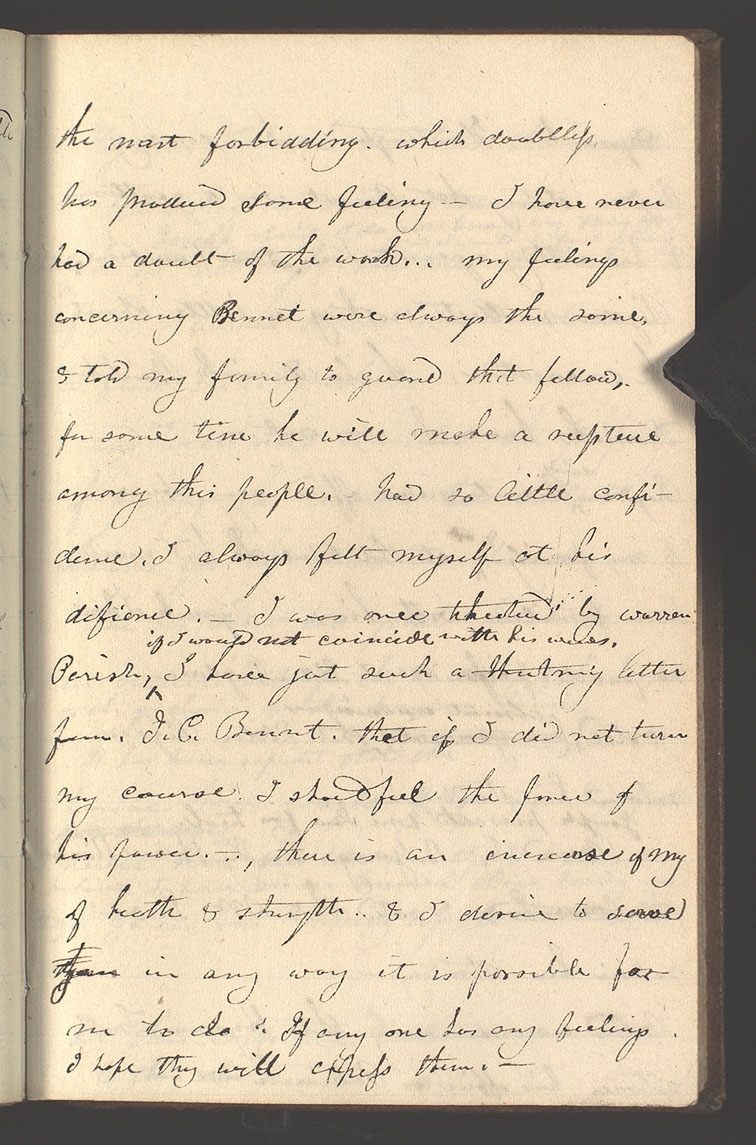 the most forbidding. which doubtless
has produced some feeling — I have never
had a doubt of the work... my feelings
concerning Bennet were always the same,
& told my family to guard that fellow,.
for some time he will make a rupture
among this people. - had so little confi-
dence. I always felt myself at his
difience. — I was once threatened by warren
if I would not coincide with his views.
Parish, ^ I have jst such a thretning letter
from. J. C. Bennet. that if I did not turn
my course I should feel the force of
his power. —, there is an increase of my
of health & strength.. & I desire to serve
in any way it is possible for
me to do. If any one has any feelings.
I hope they will express them. —